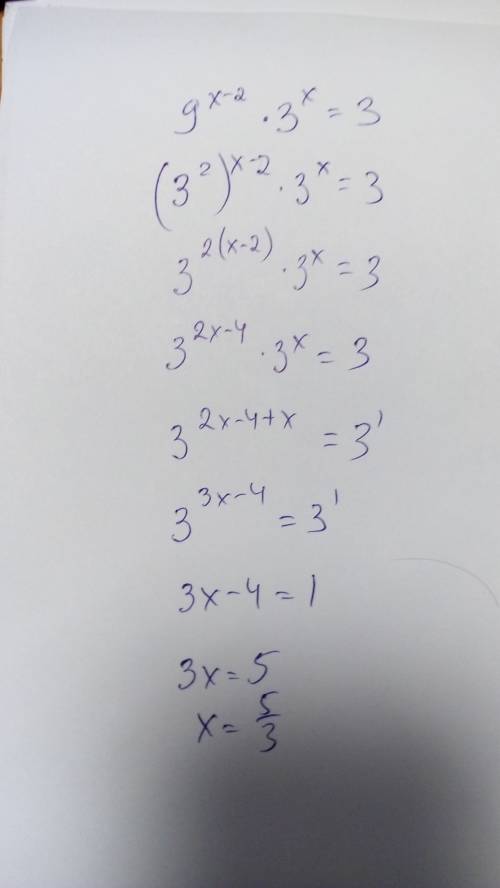 9^{x-2} · 3^x = 3
(3^2)^{x-2} · 3^x = 3
3^{2(x-2)} · 3^x = 3
3^{2x-4} · 3^x = 3
3^{2x-4+x} = 3^1
3^{3x-4} = 3^1
3x-4=1
3x=5
x=\frac{5}{3}